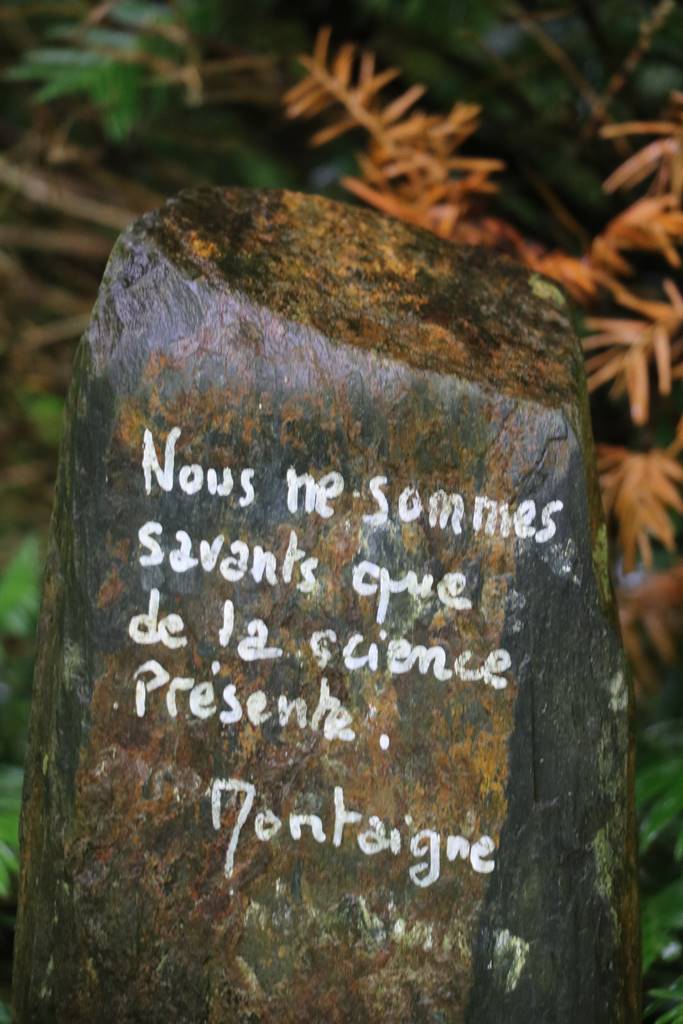 Nous ne sommes
savants que
de la science
présente.
Montaigne